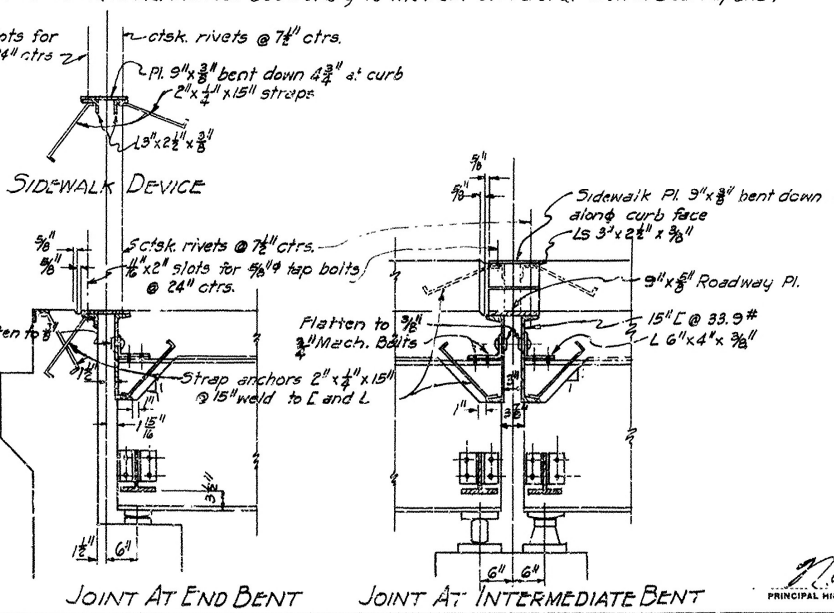 ots for
4" ctrs
ctsk. rivets @ 7½" ctrs.
Pl. 9" x ⅜" bent down 4¾" at curb
2" x ¼" x 15" straps
L3" x 2½" x ⅜"
SIDEWALK DEVICE
⅝"
⅝"
ctsk. rivets @ 7½" ctrs.
11/16" x 2" slots for ⅝"ϕ tap bolts
@ 24" ctrs.
Strap anchors 2" x ¼" x 15"
@ 15" weld to [ and L
1"
1 15/16"
3½"
1½"
6"
JOINT AT END BENT
⅝"
⅝"
Sidewalk Pl. 9" x ⅜" bent down
along curb face
Ls 3" x 2½" x ⅜"
9" x ⅝" Roadway Pl.
Flatten to ⅜"
¾" Mach. Bolts
15" [ @ 33.9#
L 6" x 4" x ⅜"
3"
1"
3⅞"
6" 6"
JOINT AT INTERMEDIATE BENT
PRINCIPAL HI